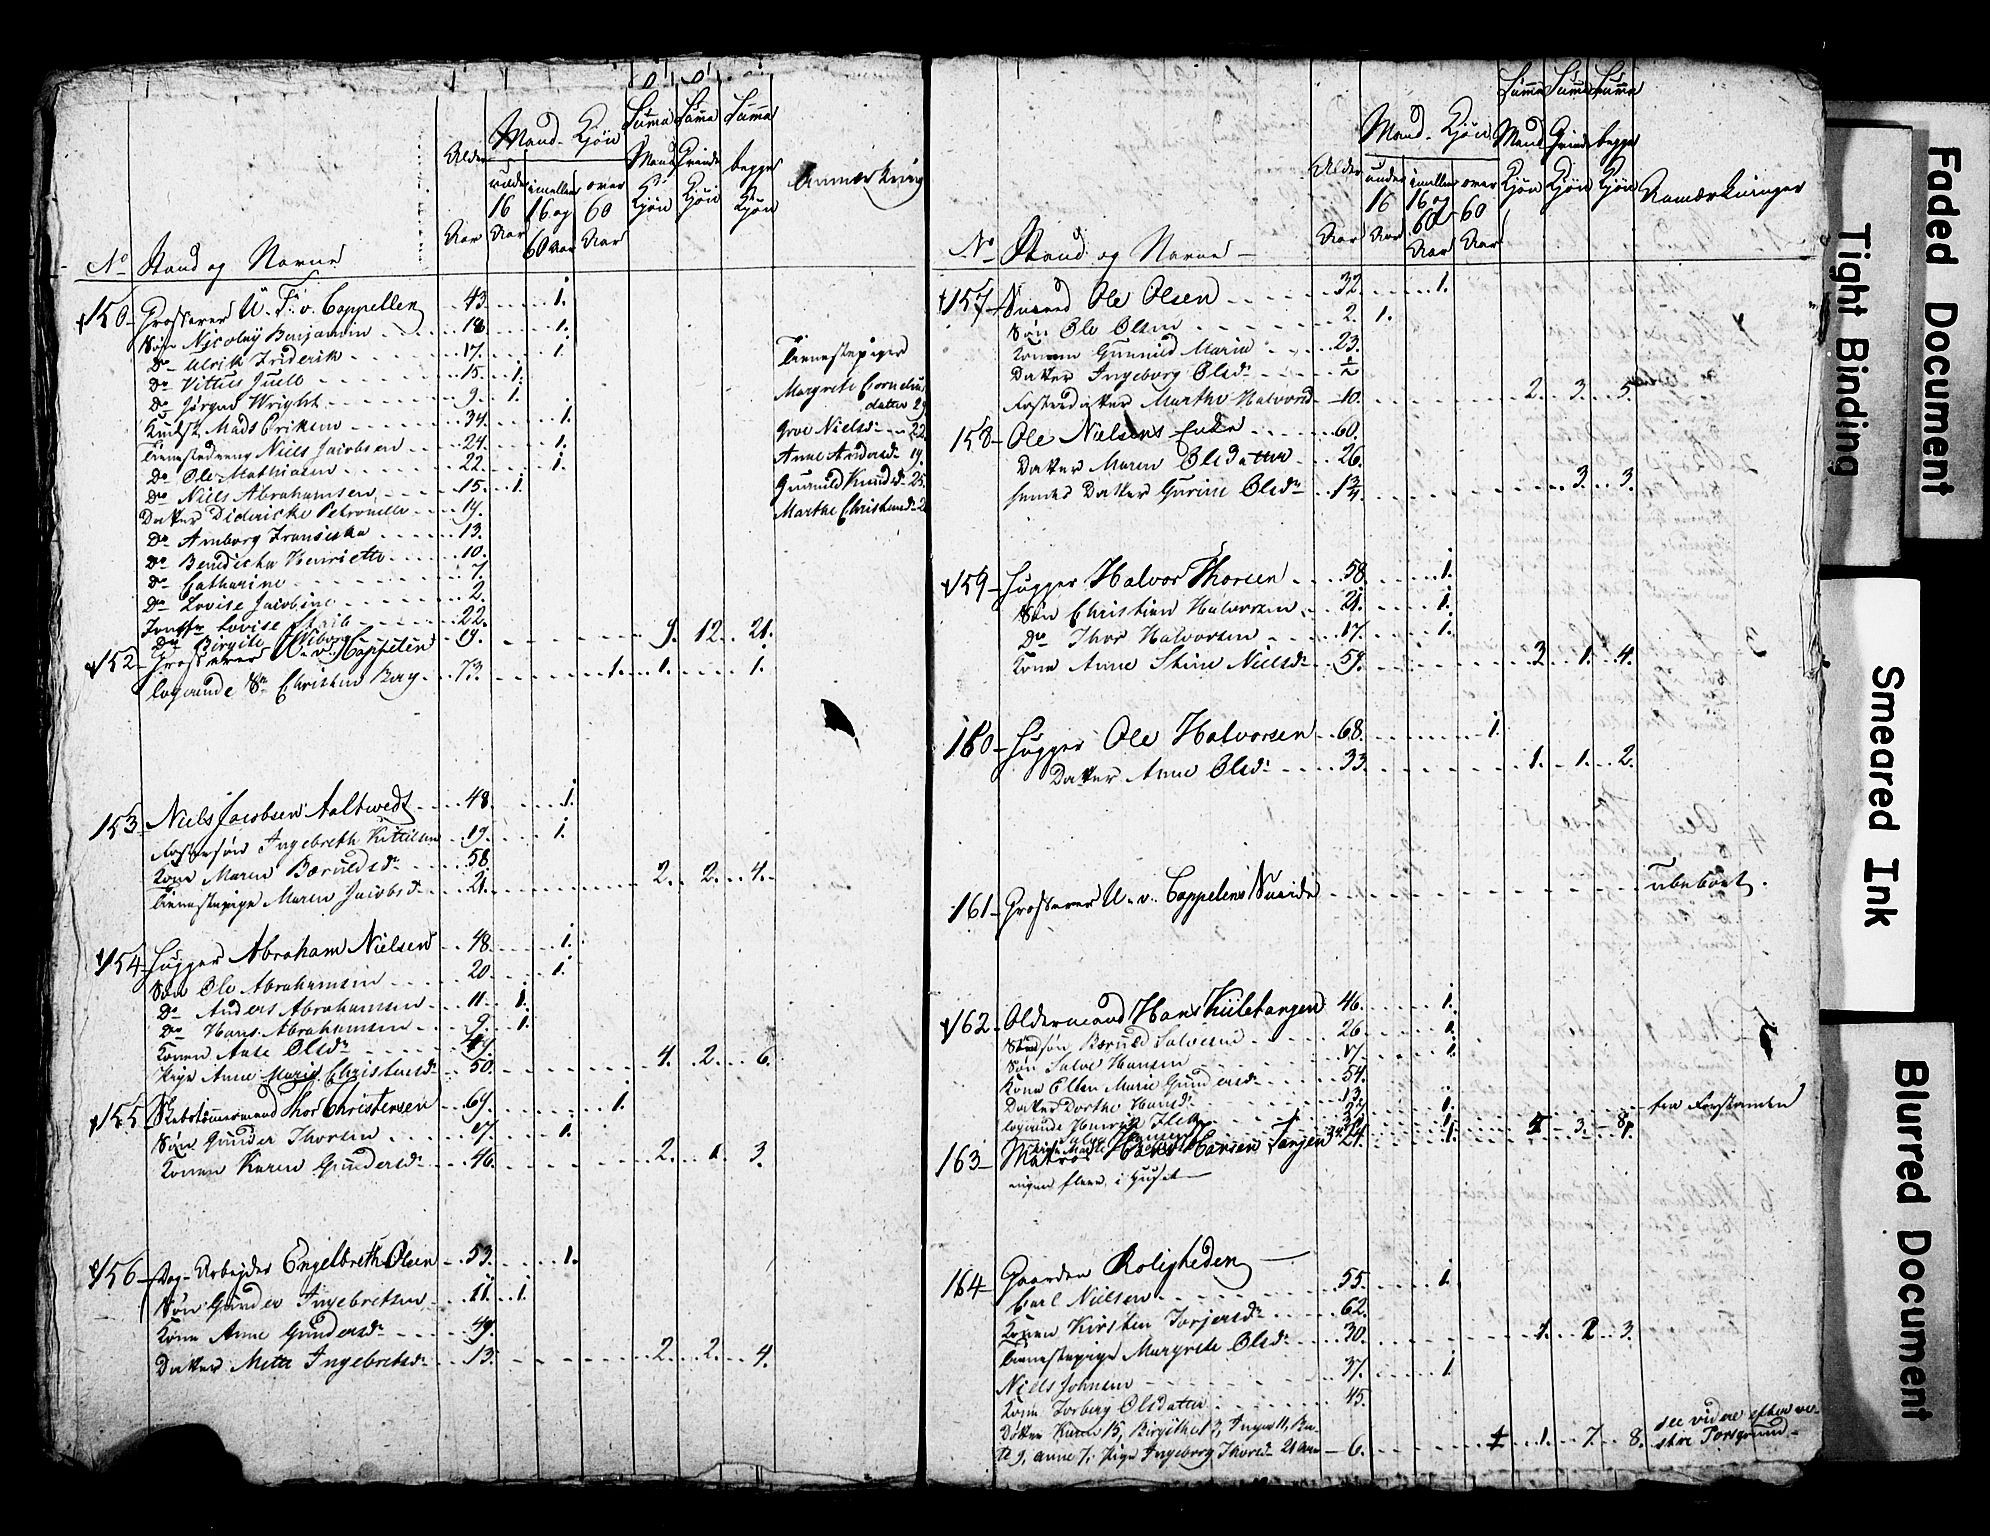 Mand-Kjøn Summa Summa Summa
Alder under 16 Aar imellem 16 og 60 Aar over 60 Aar Mand Kjøn Qvinde Kjøn begge Kjøn Anmærkning
No Stand og Navne Aar
150 Grosserer U. F. v. Cappellen 43. 1.
Søn Nicolay Benjamin 18 1.
Do Ulrik Friderik 17. 1.
Do Vittus Juell 15. 1.
Do Jørgen Wright 9. 1.
Kudsk Mads Eriksen 34. 1.
Tienestedreng Niels Jacobsen 24. 1.
Do Ole Mathiasen 22. 1.
Do Niels Abrahamsen 15. 1.
Datter Didericke Petronelle 19.
Do Amborg Fransiska 13.
Do Benedicta Henriette 10.
Do Catharine 7.
Do Lovise Jacobine 2.
Jomfr Lovise 22.
Do Birgite Wiborg 19. 9. 12. 21.
Tienestepiger
Margrete Cornelius
datter 29
Groe Nielsd. 22.
Anne Andersd. 19.
Gunnild Knudsd. 25.
Marthe Christensd.
152 Grosserer U. v. Cappelen
logerende Sr Christen Berg 73. 1. 1. 1.
153 Niels Jacobsen Aaltvedt 48. 1.
Fostersøn Ingebreth Kittilsen 19. 1.
Kone Maren Bærulds dr 58
Tienestepige Maren Jacobsd. 21. 2. 2. 4.
154 Hugger Abraham Nielsen 48. 1.
Søn Ole Abrahamsen 20. 1.
Do Anders Abrahamsen 11. 1.
Do Hans Abrahamsen 9. 1.
Konen Anse Olsdr
Pige Anne Marie Christensdr 50. 4. 2. 6.
155 Skibstømmermand Thor Christensen 69. 1.
Søn Gunder Thorsen 17. 1.
Konen Karen Gundersdr 46. 2. 1. 3.
156 Dag-Arbejder Engelbreth Olsen 53. 1.
Søn Gunder Ingebretsen 11. 1.
Kone Anne Gundersdr 49.
Datter Mette Ingebretsdr 13. 2. 2. 4.
Summa Summa Summa
Mand-Kjøn Mand Kjøn Qvinde Kjøn begge Kjøn
Alder Aar under 16 Aar imellem 16 og 60 Aar over 60 Aar Anmærkninger
No Stand og Navne
157 Smed Ole Olsen 32. 1.
Søn Ole Olsen 2. 1.
Konen Gunnild Marie 23.
Datter Ingeborg Olsdr ½
Fosterdatter Marthe Halvorsd 10. 2. 3. 5
158 Ole Nielsens Enke 60.
Datter Maren Olsdatter 26.
hendes Datter Gurine Olsdr 1¾. 3. 3.
159 Hugger Halvor Thorsen 58. 1.
Søn Christian Halvorsen 21. 1.
Do Thor Halvorsen 17. 1.
Kone Anne Stine Nielsdr 59. 3. 1. 4.
160 Hugger Ole Halvorsen 68. 1.
Datter Anne Olsdr 33. 1. 1. 2.
161 Grosserer U. v. Cappelens Smidie ubeboet.
162 Oldermand Hans Kiiletangen 46. 1.
Stedsøn Bæruld Salvesen 26. 1.
Søn Salve Hansen 17. 1.
Kone Ellen Marie Gundersdr 54.
Datter Dorthe Hansdr 13.
logerende Henrich 1. 5 3. 8.
163 Matros Hans Hansen Tangen 24. 1.
ingen flere i Huset
164 Gaarden Roligheden
Carl Nielsen 55. 1.
Konen Kirsten Torjersdr 62.
Tienestepige Margrete Olsdr 30. 1. 2. 3.
Niels Johnsen 37. 1
Kone Torberg Olsdatter 45.
Døttre Karen 15, Birgithe 13, Inger 11, Be-
te 9, anne 7. Pige Ingeborg Thorsd. 21 Aar 6. 1. 7. 8. see videre efter ve-
stre Porsgrund
Faded Document
Tight Binding
Smeared Ink
Blurred Document